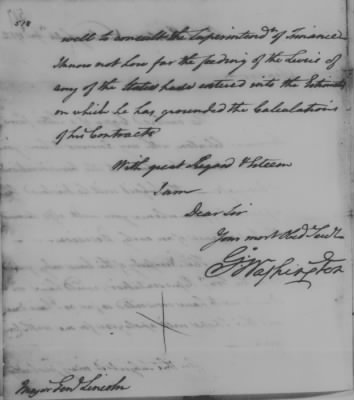 518
well to consult the Superintend.t of Finance
I know not how far the feeding of the Levies of
any of the States have entered into the Estimate
on which he has grounded the Calculations
of his Contracts
With great Regard & Esteem
I am
Dear Sir
Your most Obed.t Serv.t
G.o Washington
Major Gen.l Lincoln